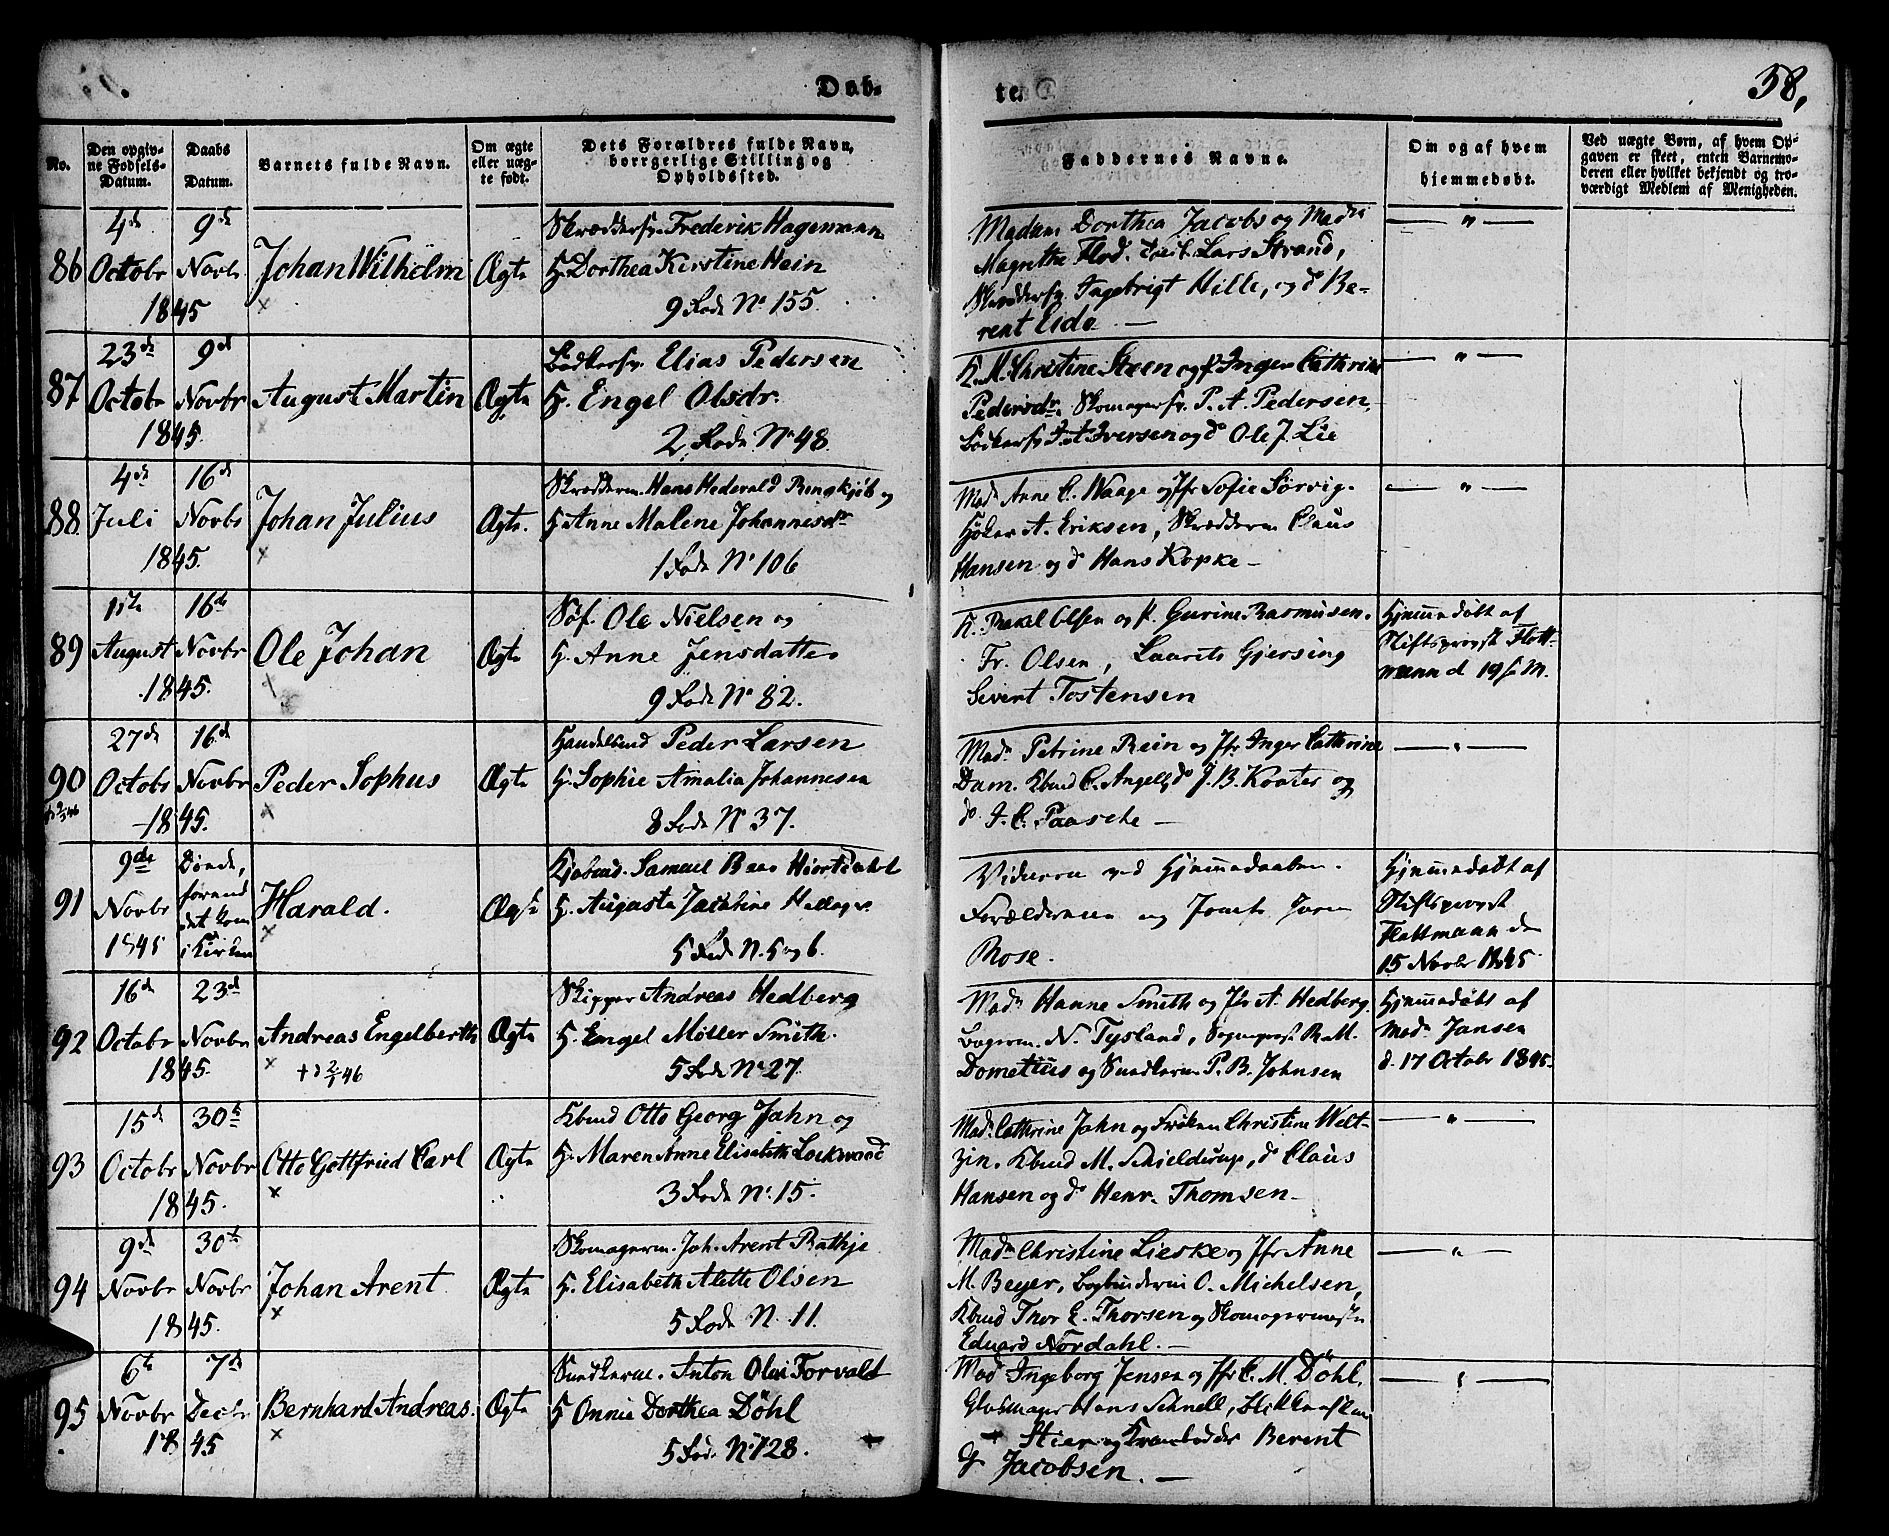 Døb-
te.
58,
No.
Den opgiv-
ne Fødsels-
Datum.
Daabs
Datum.
Barnets fulde Navn.
Om ægte
eller uæg-
te født.
Dets Forældres fulde Navn,
borrgerlige Stilling og
Opholdssted.
Faddernes Navne.
Om og af hvem
hjemmedøbt.
Ved uægte Børn, af hvem Op-
gaven er skeet, enten Barnemo-
deren eller hvilket bekjendt og tro-
værdigt Medlem af Menigheden.
86
4de
Octobr
1845
9de
Novbr
Johan Wilhelm
Ægte
Skræddersv. Frederik Hagemann
H. Dorthea Kirstine Hein
9 Rode No 155.
Madam Dorthea Jacobs og Mad
Magrethe Flod. Lars Strand,
Skræddersv. Ingebrigt Hille, og do Be-
rent Eide —
— " —
87
23de
Octobr
1845.
9de
Novbr
August Martin
Ægte
Bødkersv. Elias Pedersen
H. Engel Olsdr.
2 Rode No 48.
K. M. Christine Steen og P. Inger Cathrine
Pedersdr. Skomagersv. P. A. Pedersen,
Bødkersv. Iversen og do Ole J. Lie
— " —
88.
4de
Juli
1845.
16de
Novbr
Johan Julius
Ægte.
Skrædderm. Hans Hedevald Ringkjöb og
H. Anne Malene Johannesdr
1 Rode No 106
Mad. Anne C. Waage og Jfr Sofie Sørvig.
Høker A. Eriksen, Skrædderm Claus
Hansen og do Hans Kopke —
— " —
89
August
1845.
16de
Novbr
Ole Johan
Ægte
Søf. Ole Nielsen og
H. Anne Jensdatter
9 Rode No 82.
K. Rakel Olsen og P. Gurine Rasmusen.
Fr. Olsen, Laurits Gjersing
Sivert Tostensen
Hjemmedøbt af
Stiftsprovst Flott-
mann d 19 s. M.
90
27de
Octobr
1845.
16de
Novbr
Peder Sophus
Ægte
Handelsmd Peder Larsen
H. Sophie Amalia Johannesen
8 Rode No 37.
Mad. Petrine Rein og Jfr Inger Cathrine
Dam. Kbmd C. Angell, do J. B. Koster og
do J. C. Paasche —
— " —
91
9de
Novbr
1845
Døde,
førend
det kom
i Kirken
Harald.
Ægte
Kjøbmd. Samuel Beer Hiortdahl
H. Augusta Jacobine
5 Rode N. 5 og 6.
Vidneren ved Hjemmedaaben.
Forældrene og Jomfr.
Rose.
Hjemmedøbt af
Stiftsprovst
Flottmann den
15 Novbr 1845.
92
16de
Octobr
1845.
23de
Novbr
Andreas Engelberth
2/1 46
Ægte
Skipper Andreas Hedberg
H. Engel Möller Smith.
5 Rode No 27.
Mad. Hanne Smith og Jfr A. Hedberg.
Bagerm. N. Tysland, R. M.
Dometius og Snedkerm. P. B. Johnsen
Hjemmedøbt af
Mad. Jansen
d. 17 Octobr 1845.
93
15de
Octobr
1845.
30te
Novbr
Otto Gottfried Carl
Ægte
Kbmd Otto Georg Jahn og
H. Maren Anne Elisabeth Lockwood
3 Rode No. 15.
Mad. Cathrine Jahn og Frøken Christine Welt-
zin. Kbmd M. Schielderup, do Claus
Hansen og do Henr. Thomsen —
— " —
94
9de
Novbr
1845.
30te
Novbr
Johan Arent
Ægte
Skomagerm. Joh. Arent Rathje
H. Elisabeth Alette Olsen
5 Rode N. 11.
Mad. Christine Lieske og Jfr Anne
M. Beyer, Bogbinderm O. Michelsen,
Kbmd Thor E. Thorsen og Skomagermester
Eduard Nordahl. —
— " —
95
6te
Novbr
1845
7de
Decbr
Bernhard Andreas.
Ægte
Snedkerm. Anton Olai Forvaldt
H Onnie Dorthea Döhl
5 Rode No 128.
Mad Ingeborg Jensen og Jfr C. M. Döhl,
Glasmager Hans Schnell,
Stier og Berent
G Jacobsen. —
— " —